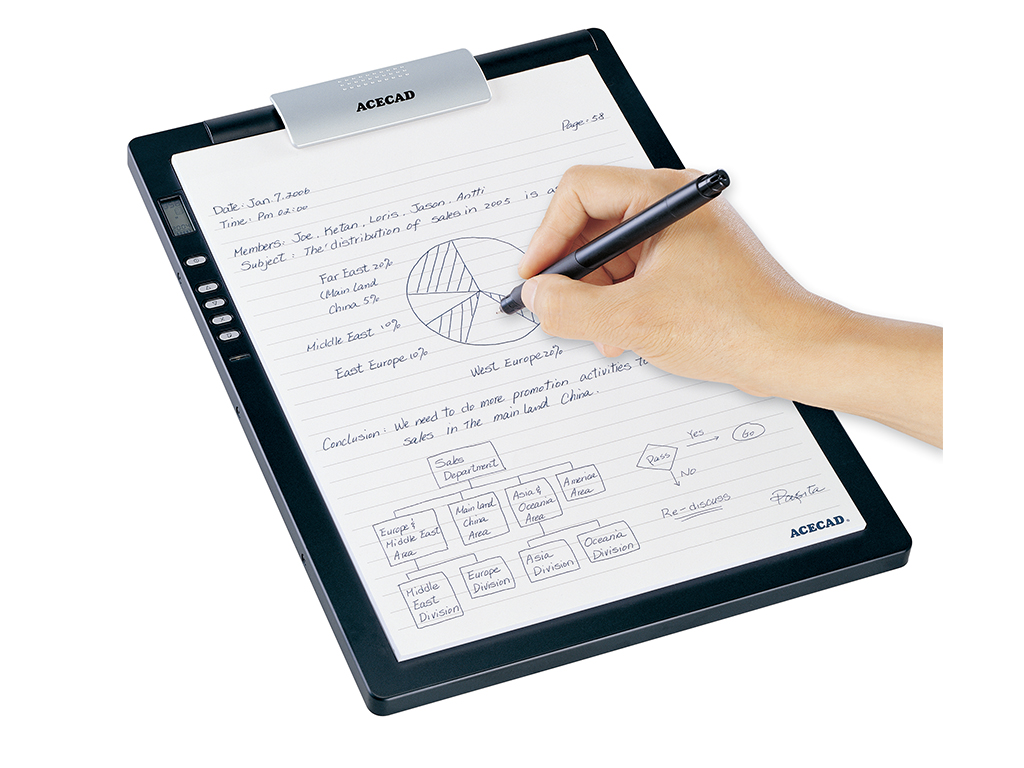 ACECAD
Page - 58
Date: Jan. 7. 2006
Time: Pm 02:00
Members: Joe, Ketan, Loris, Jason, Antti
Subject: The distribution of sales in 2005 is
Far East 20%
(Main land
China 5%
Middle East 10%
East Europe 10%
West Europe 20%
Conclusion: We need to do more promotion activities
sales in the main land China.
Sales
Department
Europe &
Middle East
Area
Main land
China
Area
Asia &
Oceania
Area
America
Area
Middle
East
Division
Europe
Division
Asia
Division
Oceania
Division
Pass
Yes
Go
No
Re-discuss
ACECAD®